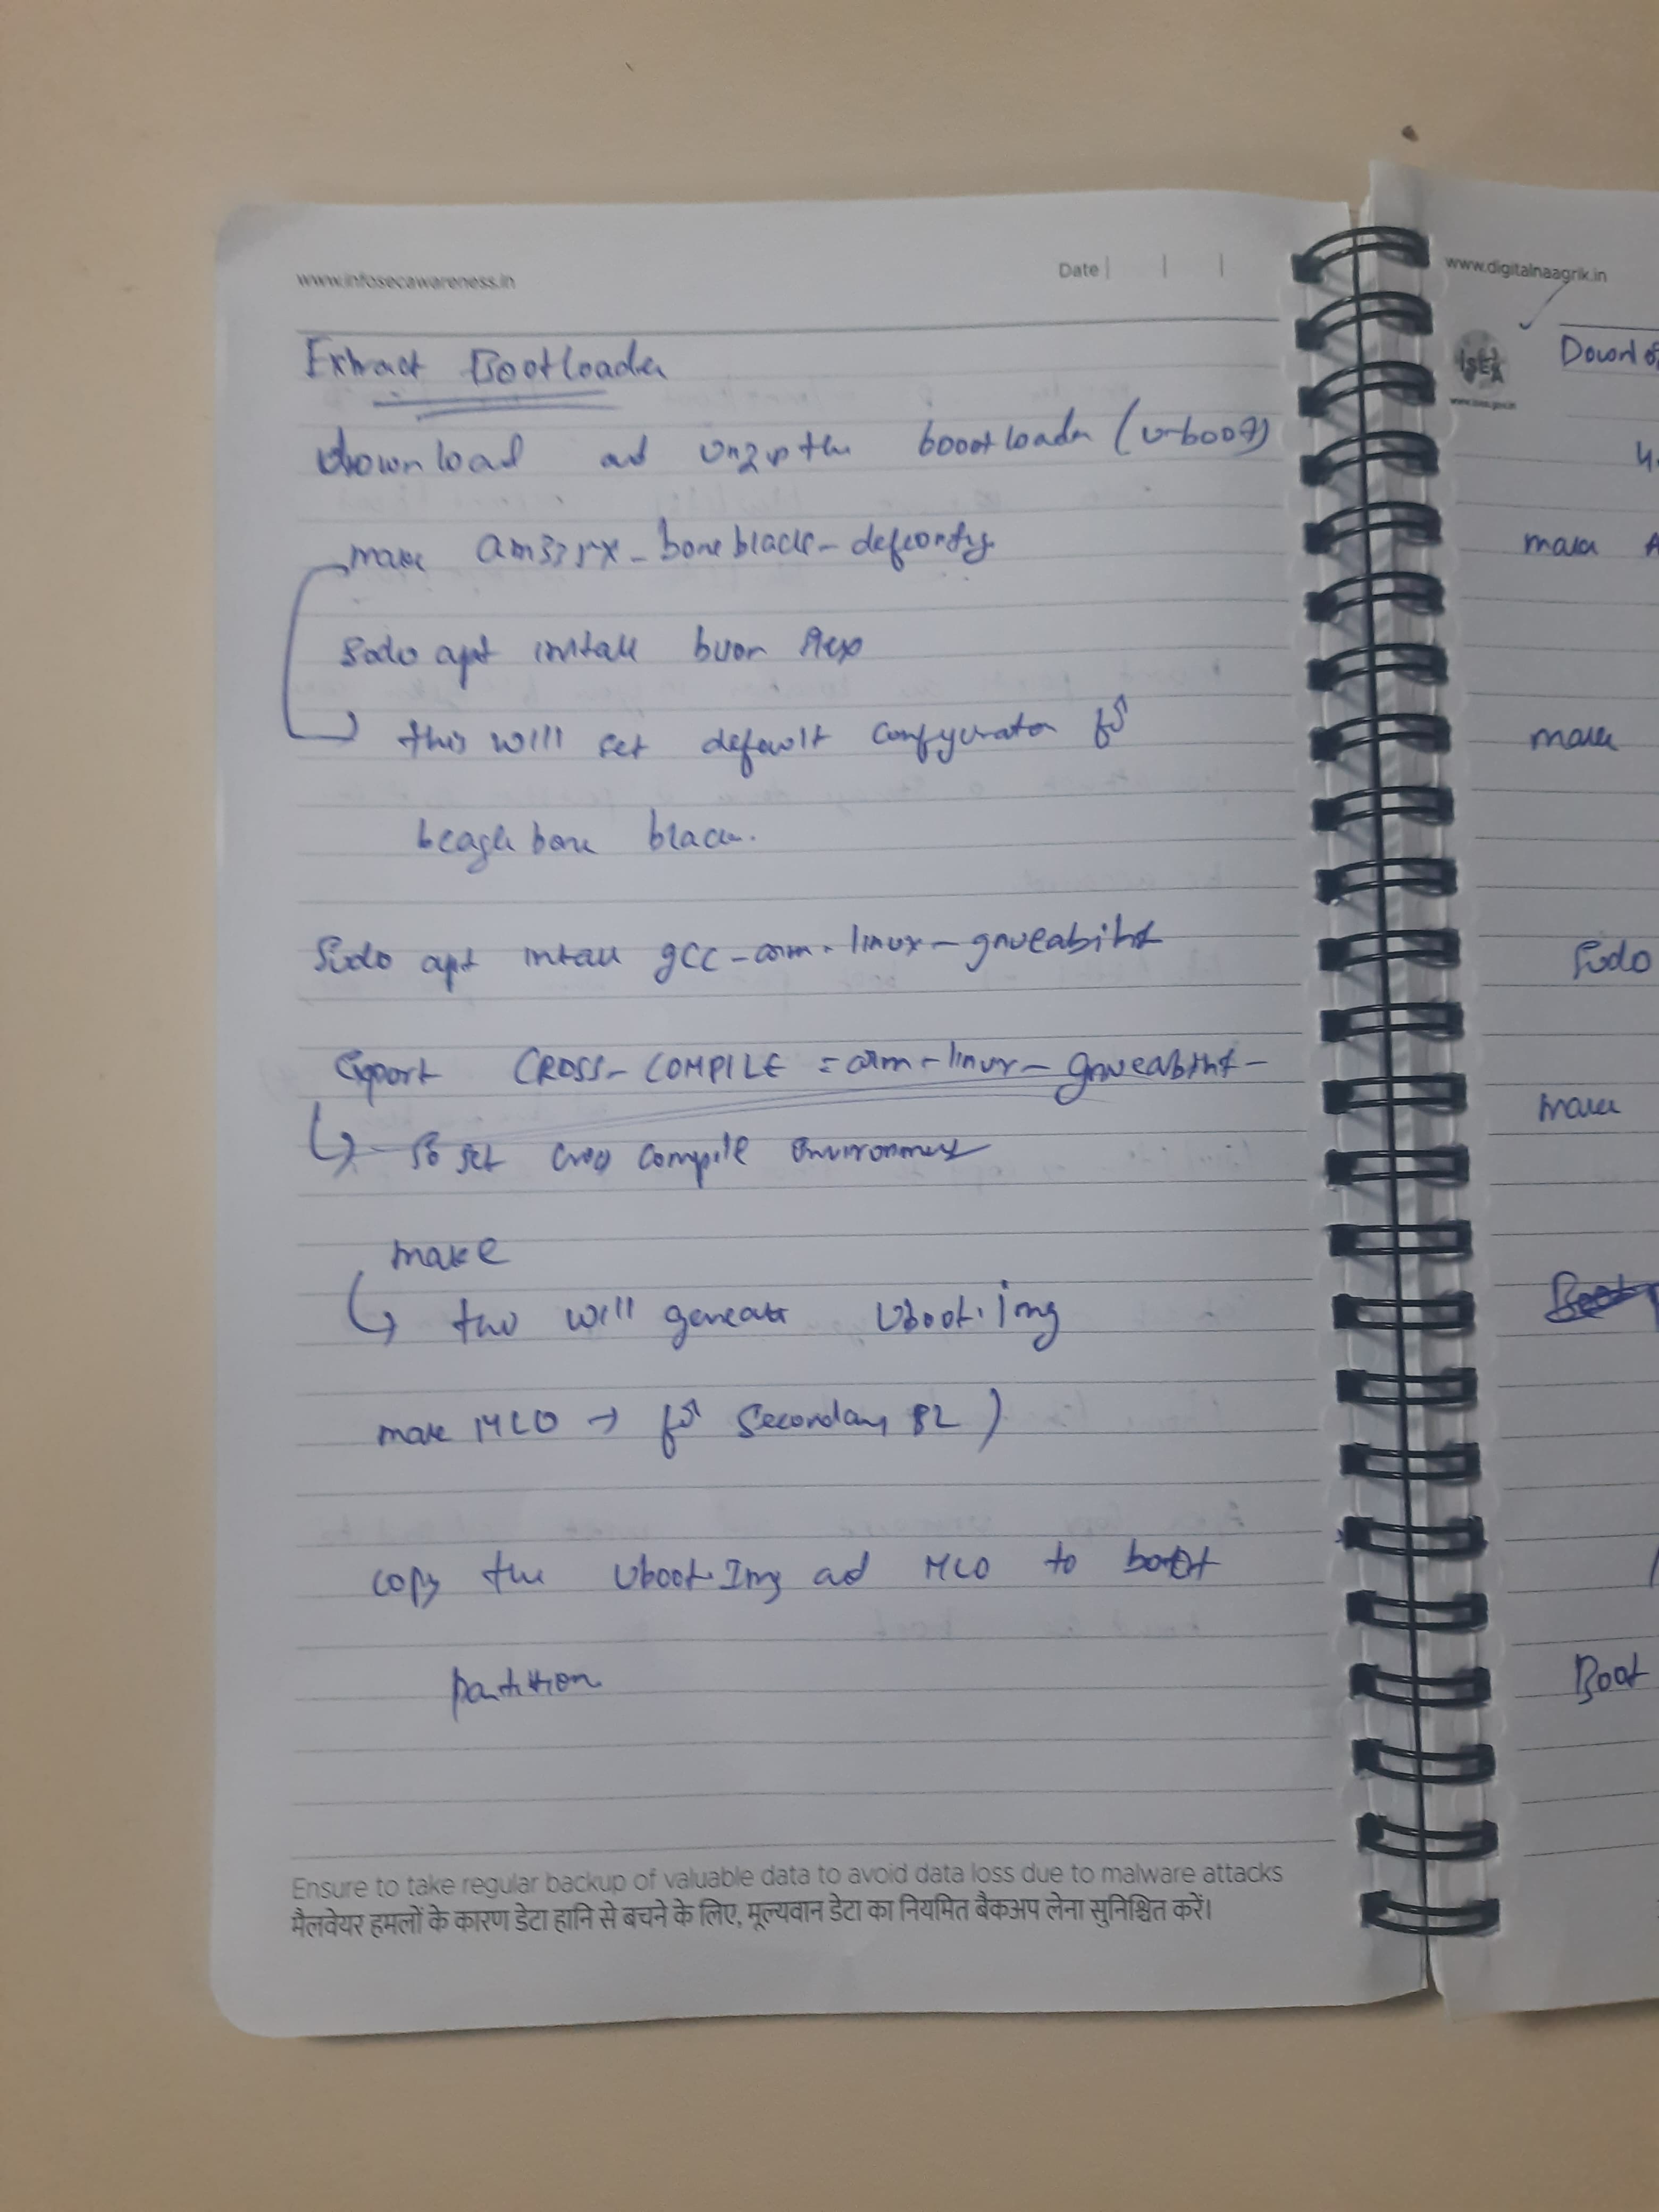 www.infosecawareness.in
Date
Extract Bootloader
download ad unzip the booot loader (u-boot)
make am335x_boneblack-defconfig
sudo apt install bison flex
this will set default configuration for
beagle bone black.
Sudo apt intall gcc-arm-linux-gnueabihf
Export CROSS-COMPILE = arm-linux-gnueabihf-
to set cross compile environment
make
this will generate Uboot.img
make MLO → for Secondary BL )
copy the Uboot.Img ad MLO to boot
partition
Ensure to take regular backup of valuable data to avoid data loss due to malware attacks
मैलवेयर हमलों के कारण डेटा हानि से बचने के लिए, मूल्यवान डेटा का नियमित बैकअप लेना सुनिश्चित करें।
www.digitalnaagrik.in
ISEA
make
make
Sudo
make
Boot